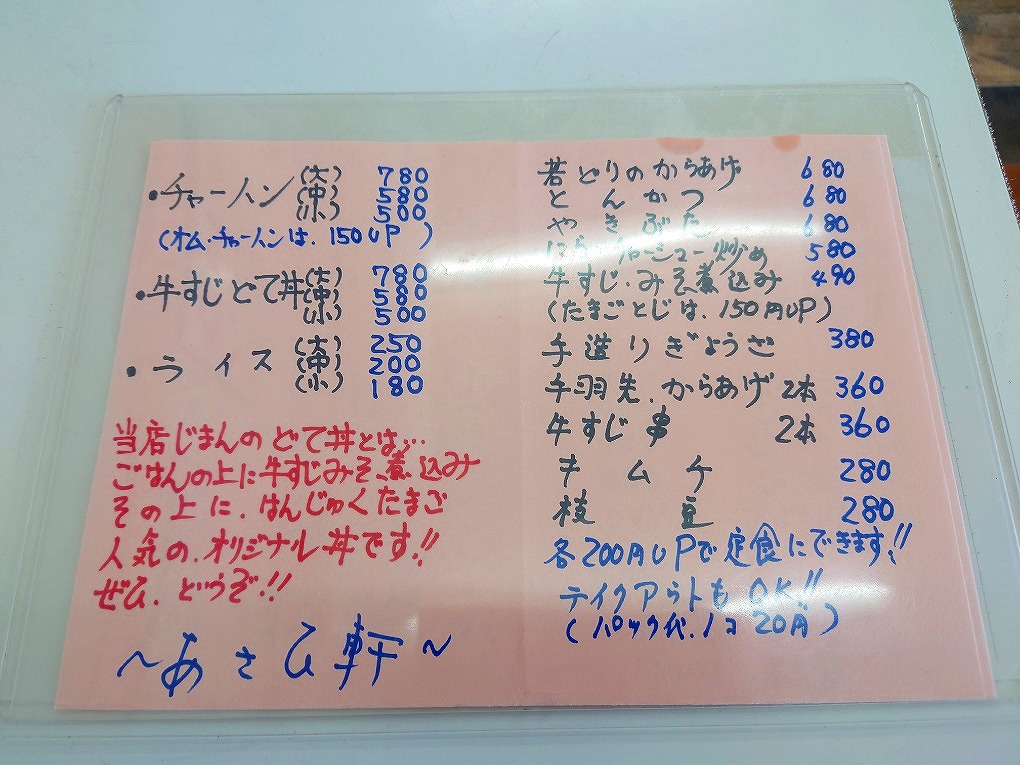 ・チャーハン (大) 780
(中) 580
(小) 500
(オム・チャーハンは、150UP)
・牛すじどて丼 (大) 780
(中) 580
(小) 500
・ライス (大) 250
(中) 200
(小) 180
当店じまんのどて丼とは…
ごはんの上に牛すじみそ煮込み
その上に、はんじゅくたまご
人気の、オリジナル丼です!!
ぜひ、どうぞ!!
~あさひ軒~
若どりのからあげ 680
とんかつ 680
やきぶた 680
炒め 580
牛すじ・みそ煮込み 490
(たまごとじは、150円UP)
手造りぎょうざ 380
手羽先、からあげ 2本 360
牛すじ串 2本 360
キムチ 280
枝豆 280
各200円UPで定食にできます!!
テイクアウトもOK!!
(パック代、1コ20円)